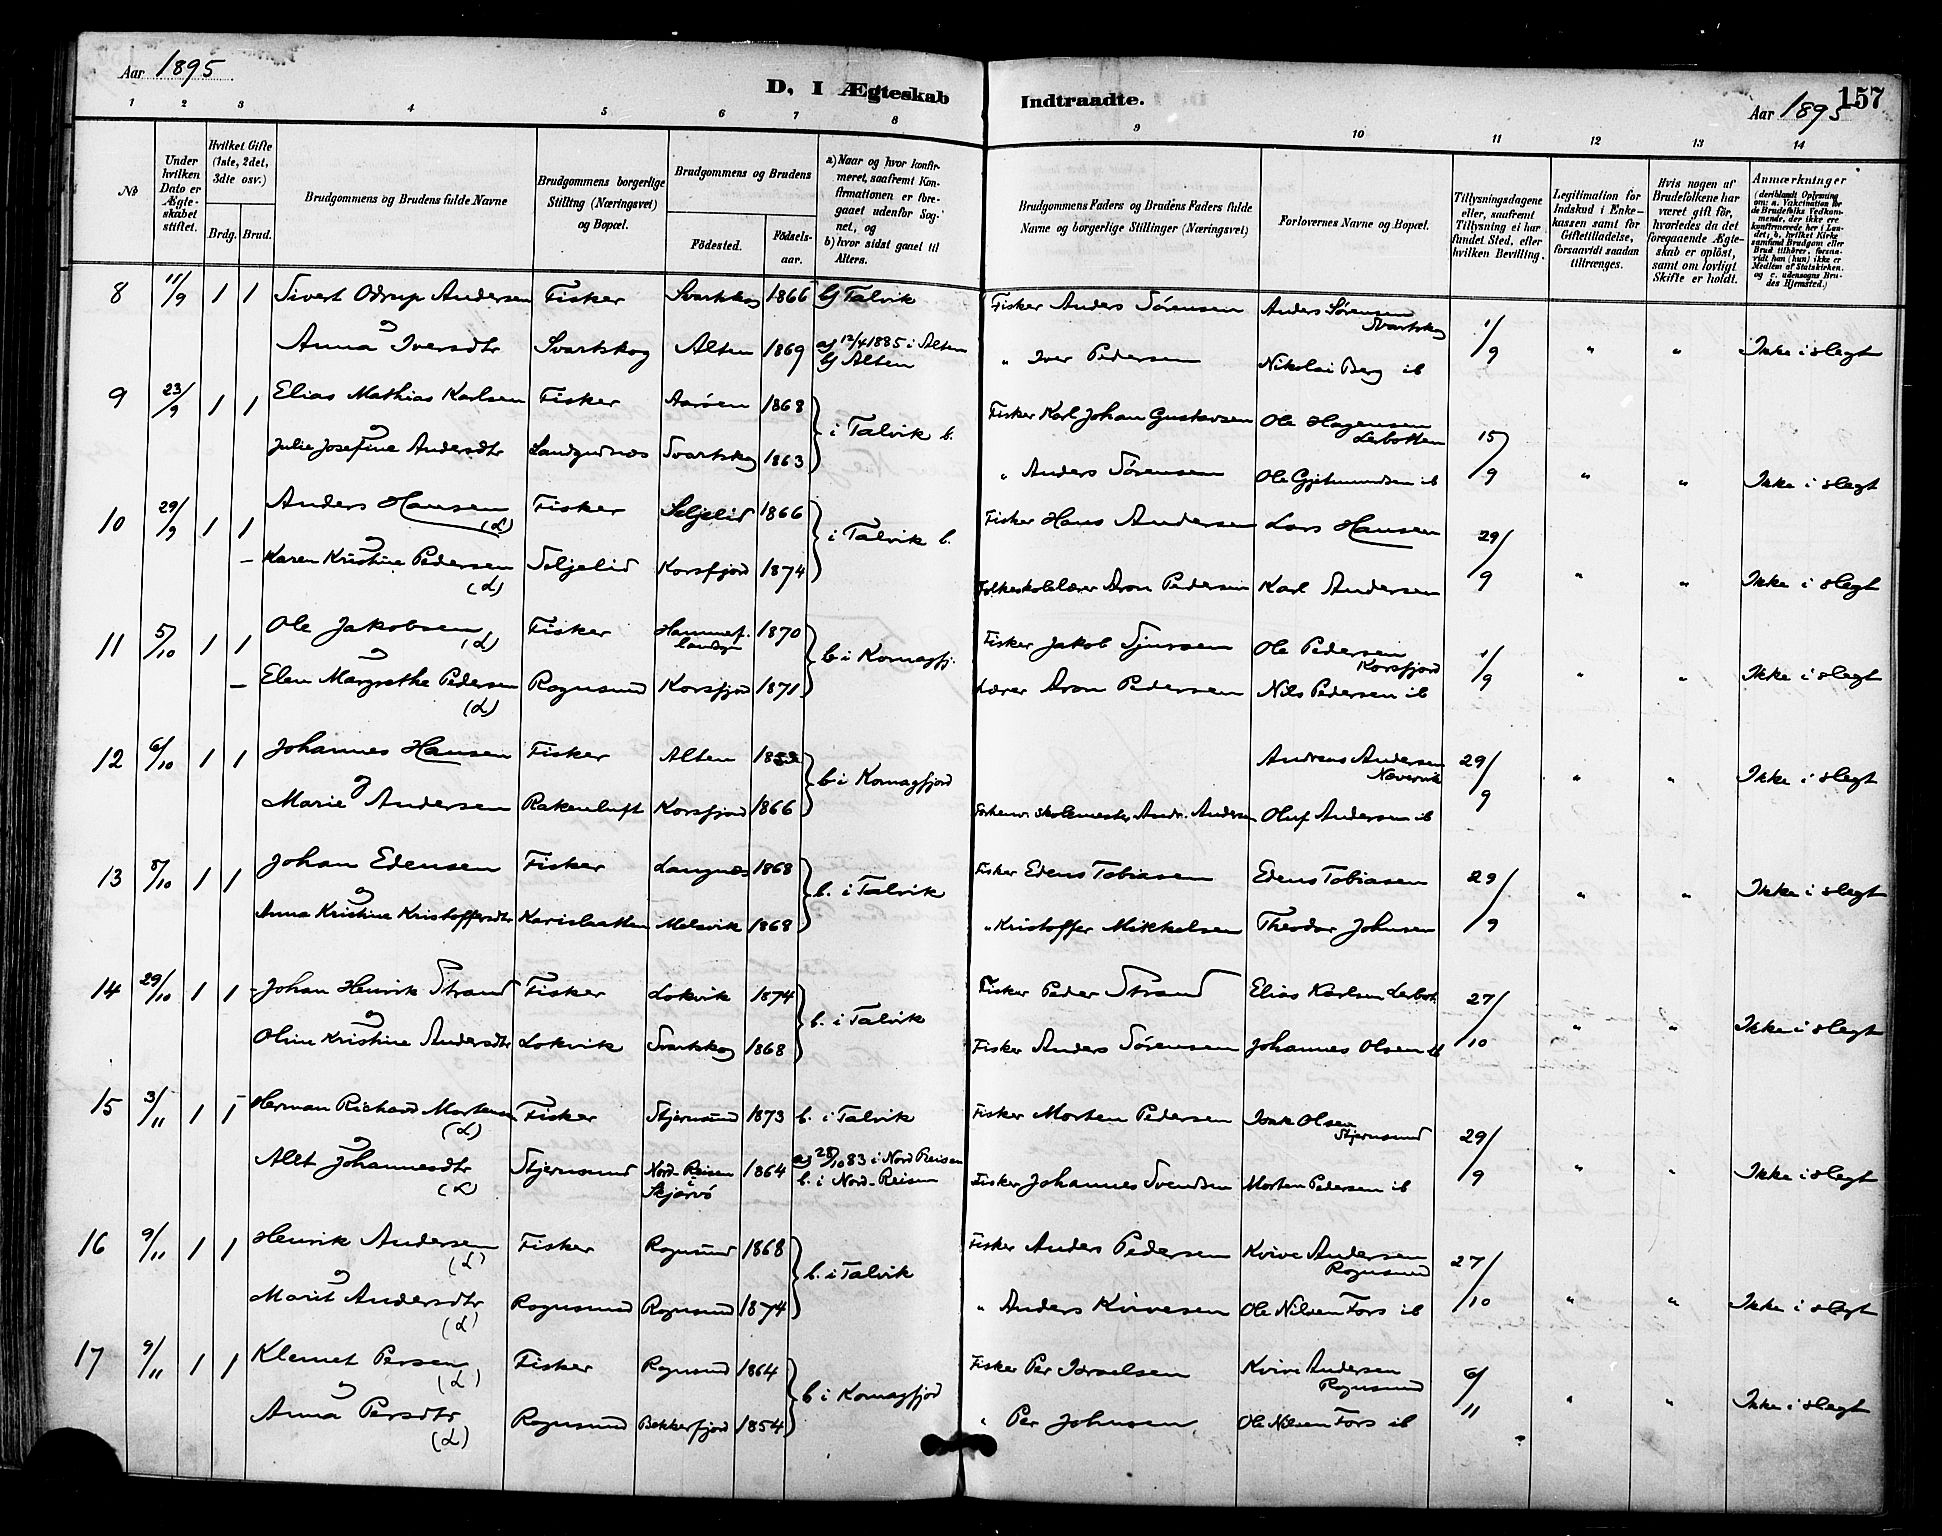 Aar 1895
D. I Ægteskab Indtraadte.
Aar 1895
157
1 2 3 4 5 6 7 8 9 10 11 12 13 14
No
Under hvilken Dato er Ægteskabet stiftet.
Hvilket Gifte (1ste, 2det, 3die osv.)
Brdg. Brud.
Brudgommens og Brudens fulde Navne
Brudgommens borgerlige Stilling (Næringsvei) og Bopæl.
Brudgommens og Brudens
Fødested.
Fødselsaar.
a) Naar og hvor konfirmeret, saafremt Konfirmationen er foregaaet udenfor Sognet, og
b) hvor sidst gaaet til Alters.
Brudgommens Faders og Brudens Faders fulde Navne og borgerlige Stillinger (Næringsvei)
Forlovernes Navne og Bopæl.
Tillysningsdagene eller, saafremt Tillysning ei har fundet Sted, efter hvilken Bevilling.
Legitimation for Indskud i Enkekassen samt for Giftetilladelse, forsaavidt saadan tiltrænges.
Hvis nogen af Brudefolkene har været gift før, hvorledes da det foregaaende Ægteskab er opløst, samt om lovligt Skifte er holdt.
Anmærkninger
(deriblandt Oplysning om: a. Vakcination for de Brudefolks Vedkommende, der ikke ere konfirmerede her i Landet, b. hvilket Kirkesamfund Brudgom eller Brud tilhører, forsaavidt han (hun) ikke er Medlem af Statskirken, og c. udensogns Brudes Hjemsted.)
8 11/9 1 1 Sivert Odrup Andersen Fisker Svartskog 1866 b) Talvik Fisker Anders Sørensen Anders Sørensen Svartskog 1/9
og
Anna Iversdtr Svartskog Alten 1869 a) 12/4 1885 i Alten b) Alten " Iver Pedersen Nikolai Berg ib " " Ikke i slegt
9 23/9 1 1 Elias Mathias Karlsen Fisker Aarøen 1868 i Talvik b. Fisker Karl Johan Gustavsen Ole Hagensen Lerbotten 15/9
og
Julie Josefine Andersdtr Landgudnes Svartskog 1863 " Anders Sørensen Ole Gjetmundsen ib " " Ikke i slegt
10 29/9 1 1 Anders Hansen (L) Fisker Seljelid 1866 i Talvik b. Fisker Hans Andersen Lars Hansen 29/9
og
Karen Kristine Pedersen (L) Seljelid Korsfjord 1874 Folkeskolelærer Aron Pedersen Karl Andersen " " Ikke i slegt
11 5/10 1 1 Ole Jakobsen (L) Fisker Hammerf. landsgn 1870 b i Komagfj. Fisker Jakob Sjursen Ole Pedersen Korsfjord 1/9
og
Elen Margrethe Pedersen (L) Rognsund Korsfjord 1871 Lærer Aron Pedersen Nils Pedersen ib " " Ikke i slegt
12 6/10 1 1 Johannes Hansen Fisker Alten b i Komagfjord Andreas Andersen Navervik 29/9
og
Marie Andersen Rakenluft Korsfjord 1866 Forhenv. Skolemester Andr. Andersen Oluf Andersen ib " " Ikke i slegt
13 8/10 1 1 Johan Edensen Fisker Langnes 1868 b. i Talvik Fisker Edens Tobiasen Edens Tobiasen 29/9
og
Anna Kristine Kristoffersdtr Melsvik 1868 " Kristoffer Mikkelsen Theodor Johnsen " " Ikke i slegt
14 29/10 1 1 Johan Henrik Strand Fisker Lokvik 1874 b. i Talvik Fisker Peder Strand Elias Karlsen Lerbot. 27/10
og
Oline Kristine Andersdtr Lokvik Svartskog 1868 Fisker Anders Sørensen Johannes Olsen ib " " Ikke i slegt
15 3/11 1 1 Herman Richard Mortensen (L) Fisker Stjernsund 1873 b. i Talvik Fisker Morten Pedersen Isak Olsen Stjernsund 29/9
og
Allt Johannesdtr (L) Stjernsund Nord-Reisen i Skjervø 1864 a) 28/10 83 i Nord Reisen b. i Nord-Reisen Fisker Johannes Svendsen Morten Pedersen ib " " Ikke i slegt
16 9/11 1 1 Henrik Andersen (L) Fisker Rognsund 1868 b. i Talvik Fisker Anders Pedersen Kvive Andersen Rognsund 27/10
og
Marit Andersdtr (L) Rognsund Rognsund 1874 " Anders Kvivesen Ole Nilsen Fors ib " " Ikke i slegt
17 9/11 1 1 Klemet Persen (L) Fisker Rognsund 1864 b i Komagfjord Fisker Per Isralsen Kvive Andersen Rognsund 6/11
og
Anna Persdtr (L) Rognsund Bekkerfjord 1854 " Per Johnsen Ole Nilsen Fors ib " " Ikke i slegt